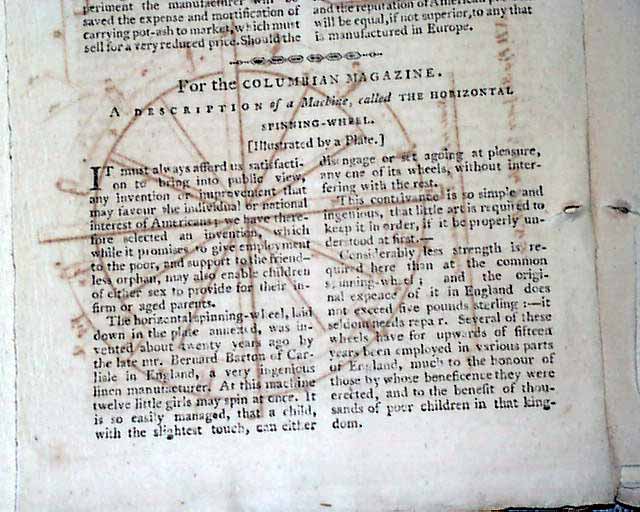 periment the manufacturer will be
saved the expense and mortification of
carrying pot-ash to market, which must
sell for a very reduced price. Should the
and the reputation of American
will be equal, if not superior, to any that
is manufactured in Europe.
For the COLUMBIAN MAGAZINE.
A DESCRIPTION of a Machine, called THE HORIZONTAL
SPINNING-WHEEL.
[Illustrated by a Plate.]
IT must always afford us satisfacti-
on to bring into public view,
any invention or improvement that
may favour the individual or national
interest of Americans; we have there-
fore selected an invention, which
while it promises to give employment
to the poor, and support to the friend-
less orphan, may also enable children
of either sex to provide for their in-
firm or aged parents.
The horizontal spinning-wheel, laid
down in the plate annexed, was in-
vented about twenty years ago by
the late mr. Bernard Barton of Car-
lisle in England, a very ingenious
linen manufacturer. At this machine
twelve little girls may spin at once. It
is so easily managed, that a child,
with the slightest touch, can either
disengage or set agoing at pleasure,
any one of its wheels, without inter-
fering with the rest.
This contrivance is so simple and
ingenious, that little art is required to
keep it in order, if it be properly un-
derstood at first.—
Considerably less strength is re-
quired here than at the common
spinning-wheel; and the origi-
nal expence of it in England does
not exceed five pounds sterling:—it
seldom needs repair. Several of these
wheels have for upwards of fifteen
years been employed in various parts
of England, much to the honour of
those by whose beneficence they were
erected, and to the benefit of thou-
sands of poor children in that king-
dom.